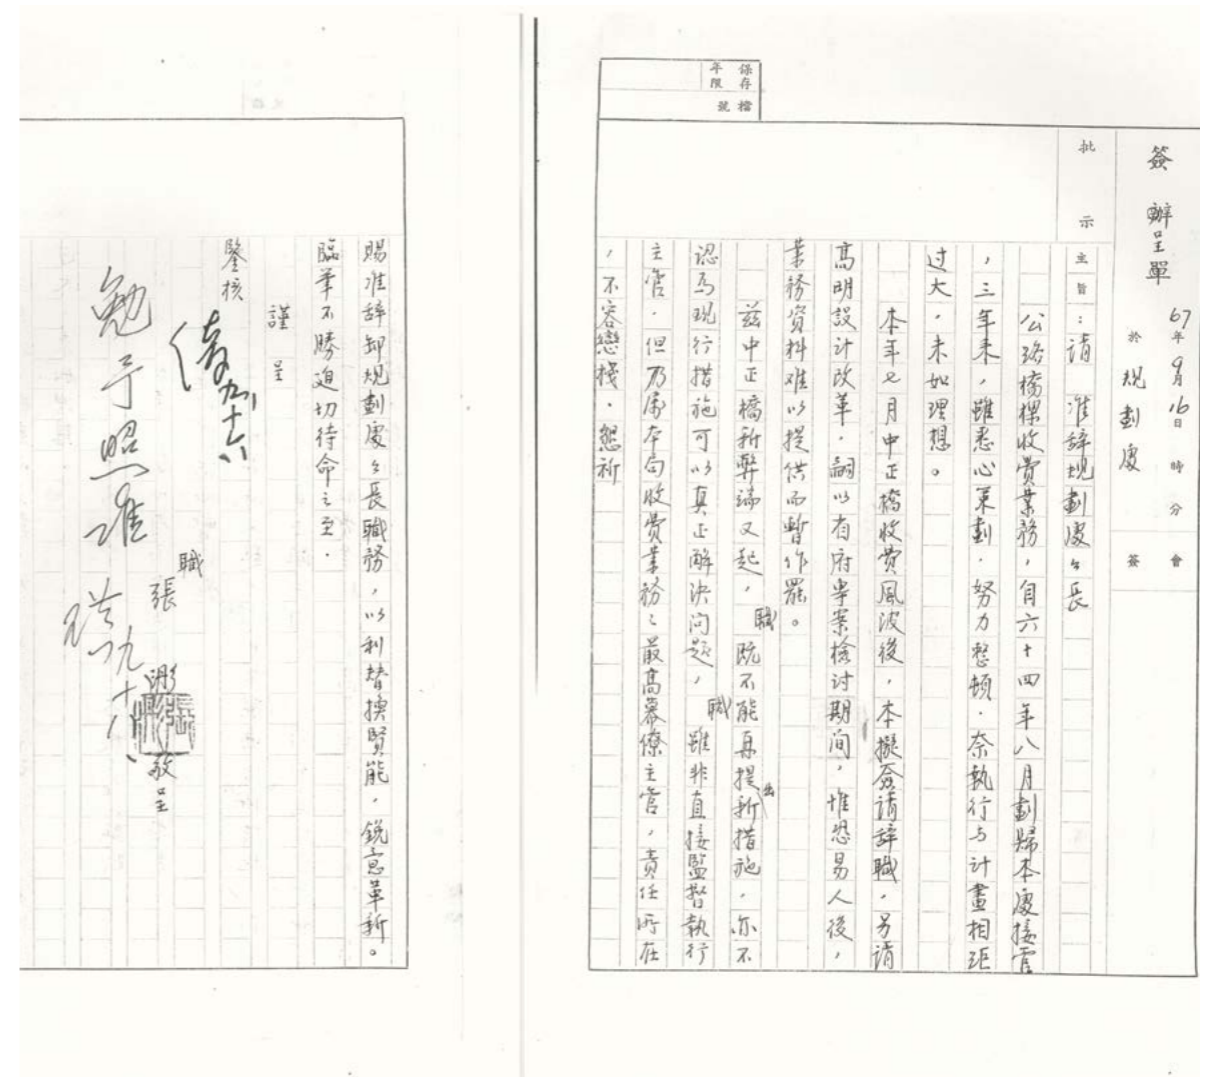 保存年限
檔號
簽辦呈單
67年9月16日 時 分
於規劃處
簽 會
批示
主旨：請 准辞規劃處々長
公路橋樑收費業務，自六十四年八月劃歸本處接管
，三年来，雖悉心策劃．努力整頓．奈執行与計畫相距
过大，未如理想。
本年七月中正橋收费風波後，本擬簽請辞職，另請
高明設計改革，嗣以有府專案檢討期间，惟恐易人後，
業務資料难以提供而暫作罷。
茲中正橋新弊端又起，職既不能再提出新措施，亦不
認為現行措施可以真正解決问题，職雖非直接監督執行
主管．但乃属本局收费業務之最高幕僚主管，責任所在
，不容戀棧．懇祈
賜准辞卸規劃處々長職務，以利替換賢能，銳意革新。
臨筆不勝迫切待命之至．
謹呈
鑒核
九十六
職
張
彤
敬呈
勉予照准
九十八